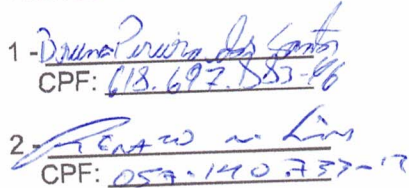 1 - Bruna Pereira dos Santos
CPF: 618.697.883-46
2 - RENATO
CPF: 057.140.737-12